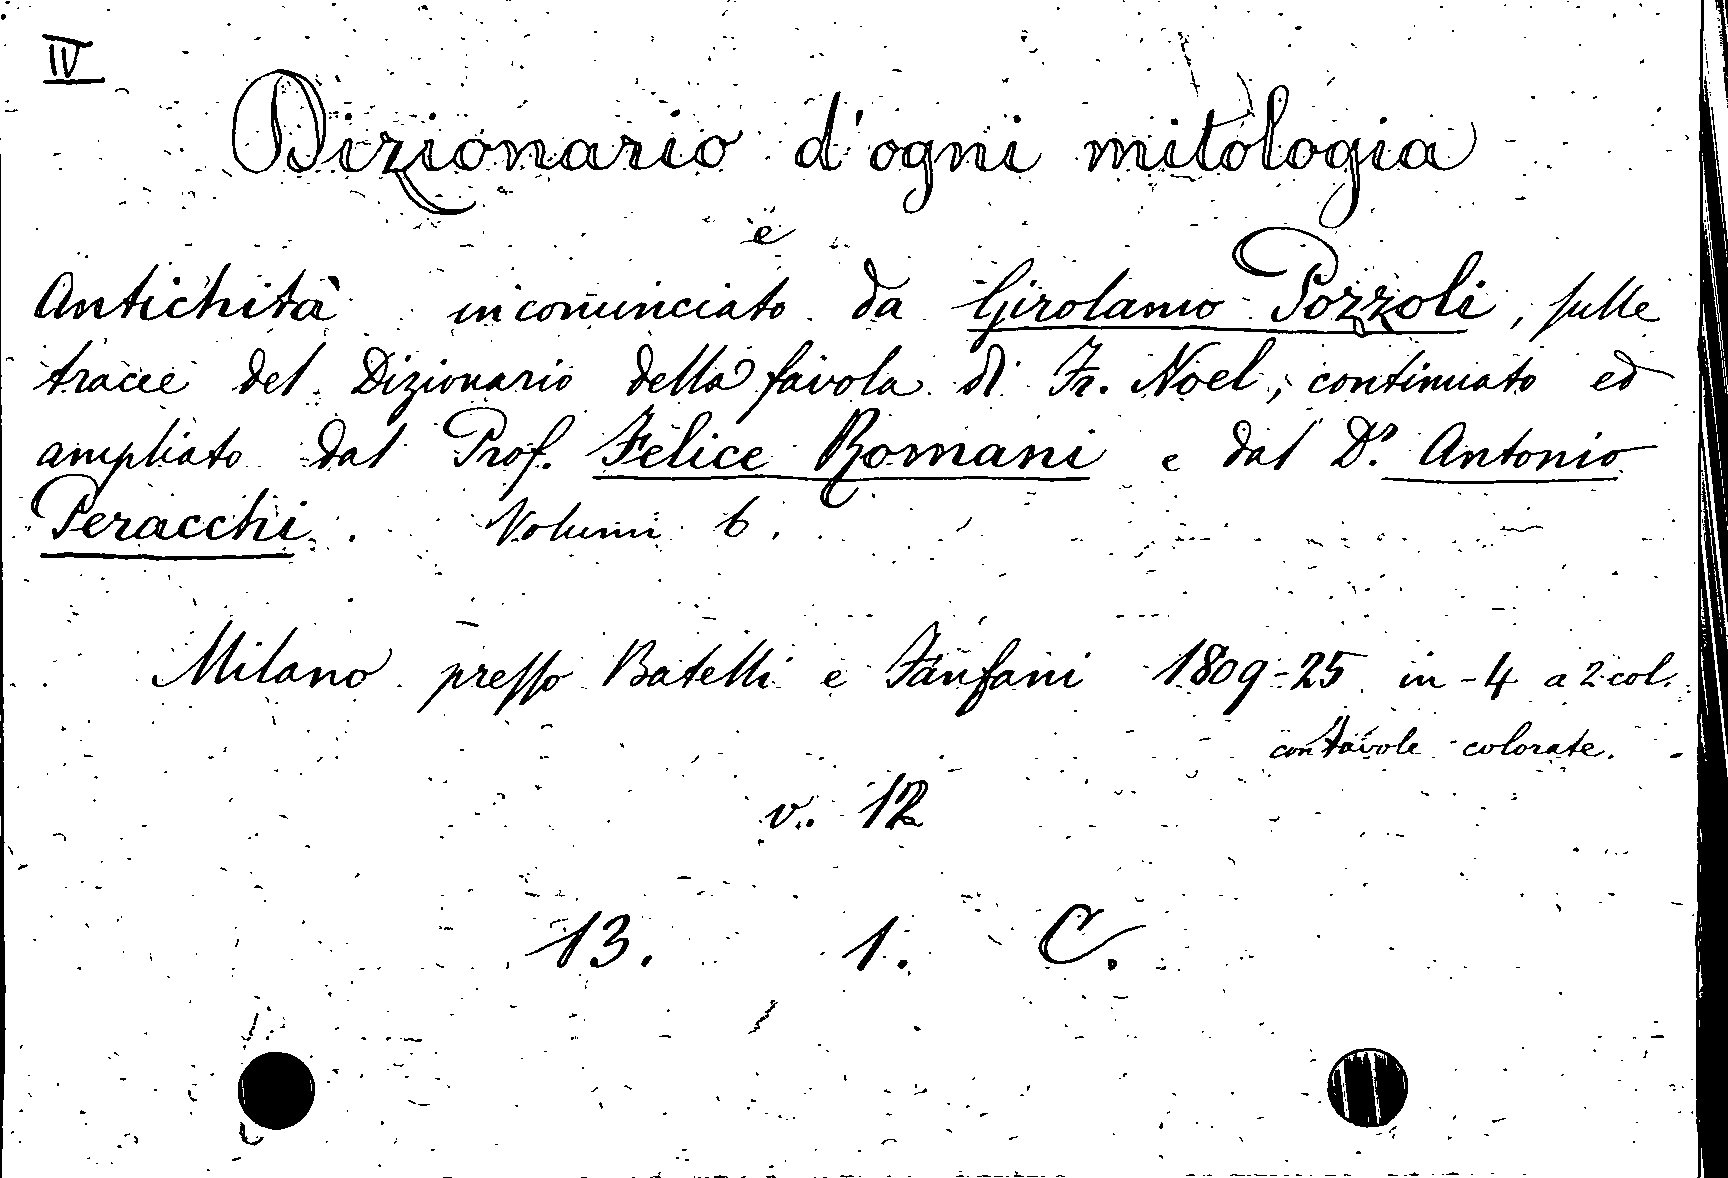 IV
Dizionario d'ogni mitologia
e
Antichità incominciato da Girolamo Pozzoli, sulle
tracce del Dizionario della favola di Fr. Noel, continuato ed
ampliato dal Prof. Felice Romani e dal Dr. Antonio
Peracchi. Volumi 6.
Milano presso Batelli e Fanfani 1809-25 in-4 a 2 col.
con tavole colorate.
v. 12
13. 1. C.